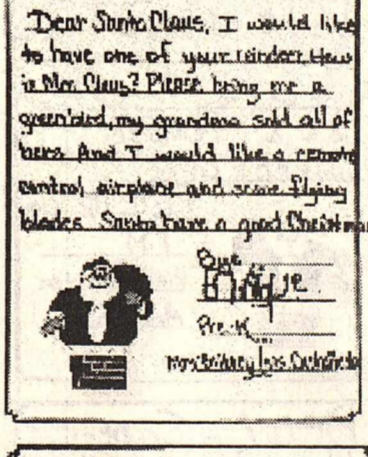 Dear Santa Claus, I would like
to have one of your reindeer. How
is Mrs. Claus? Please bring me a
green bird, my grandma sold all of
hers. And I would like a remote
control airplane and some flying
blades. Santa have a good Christmas
Bye
Pre-K